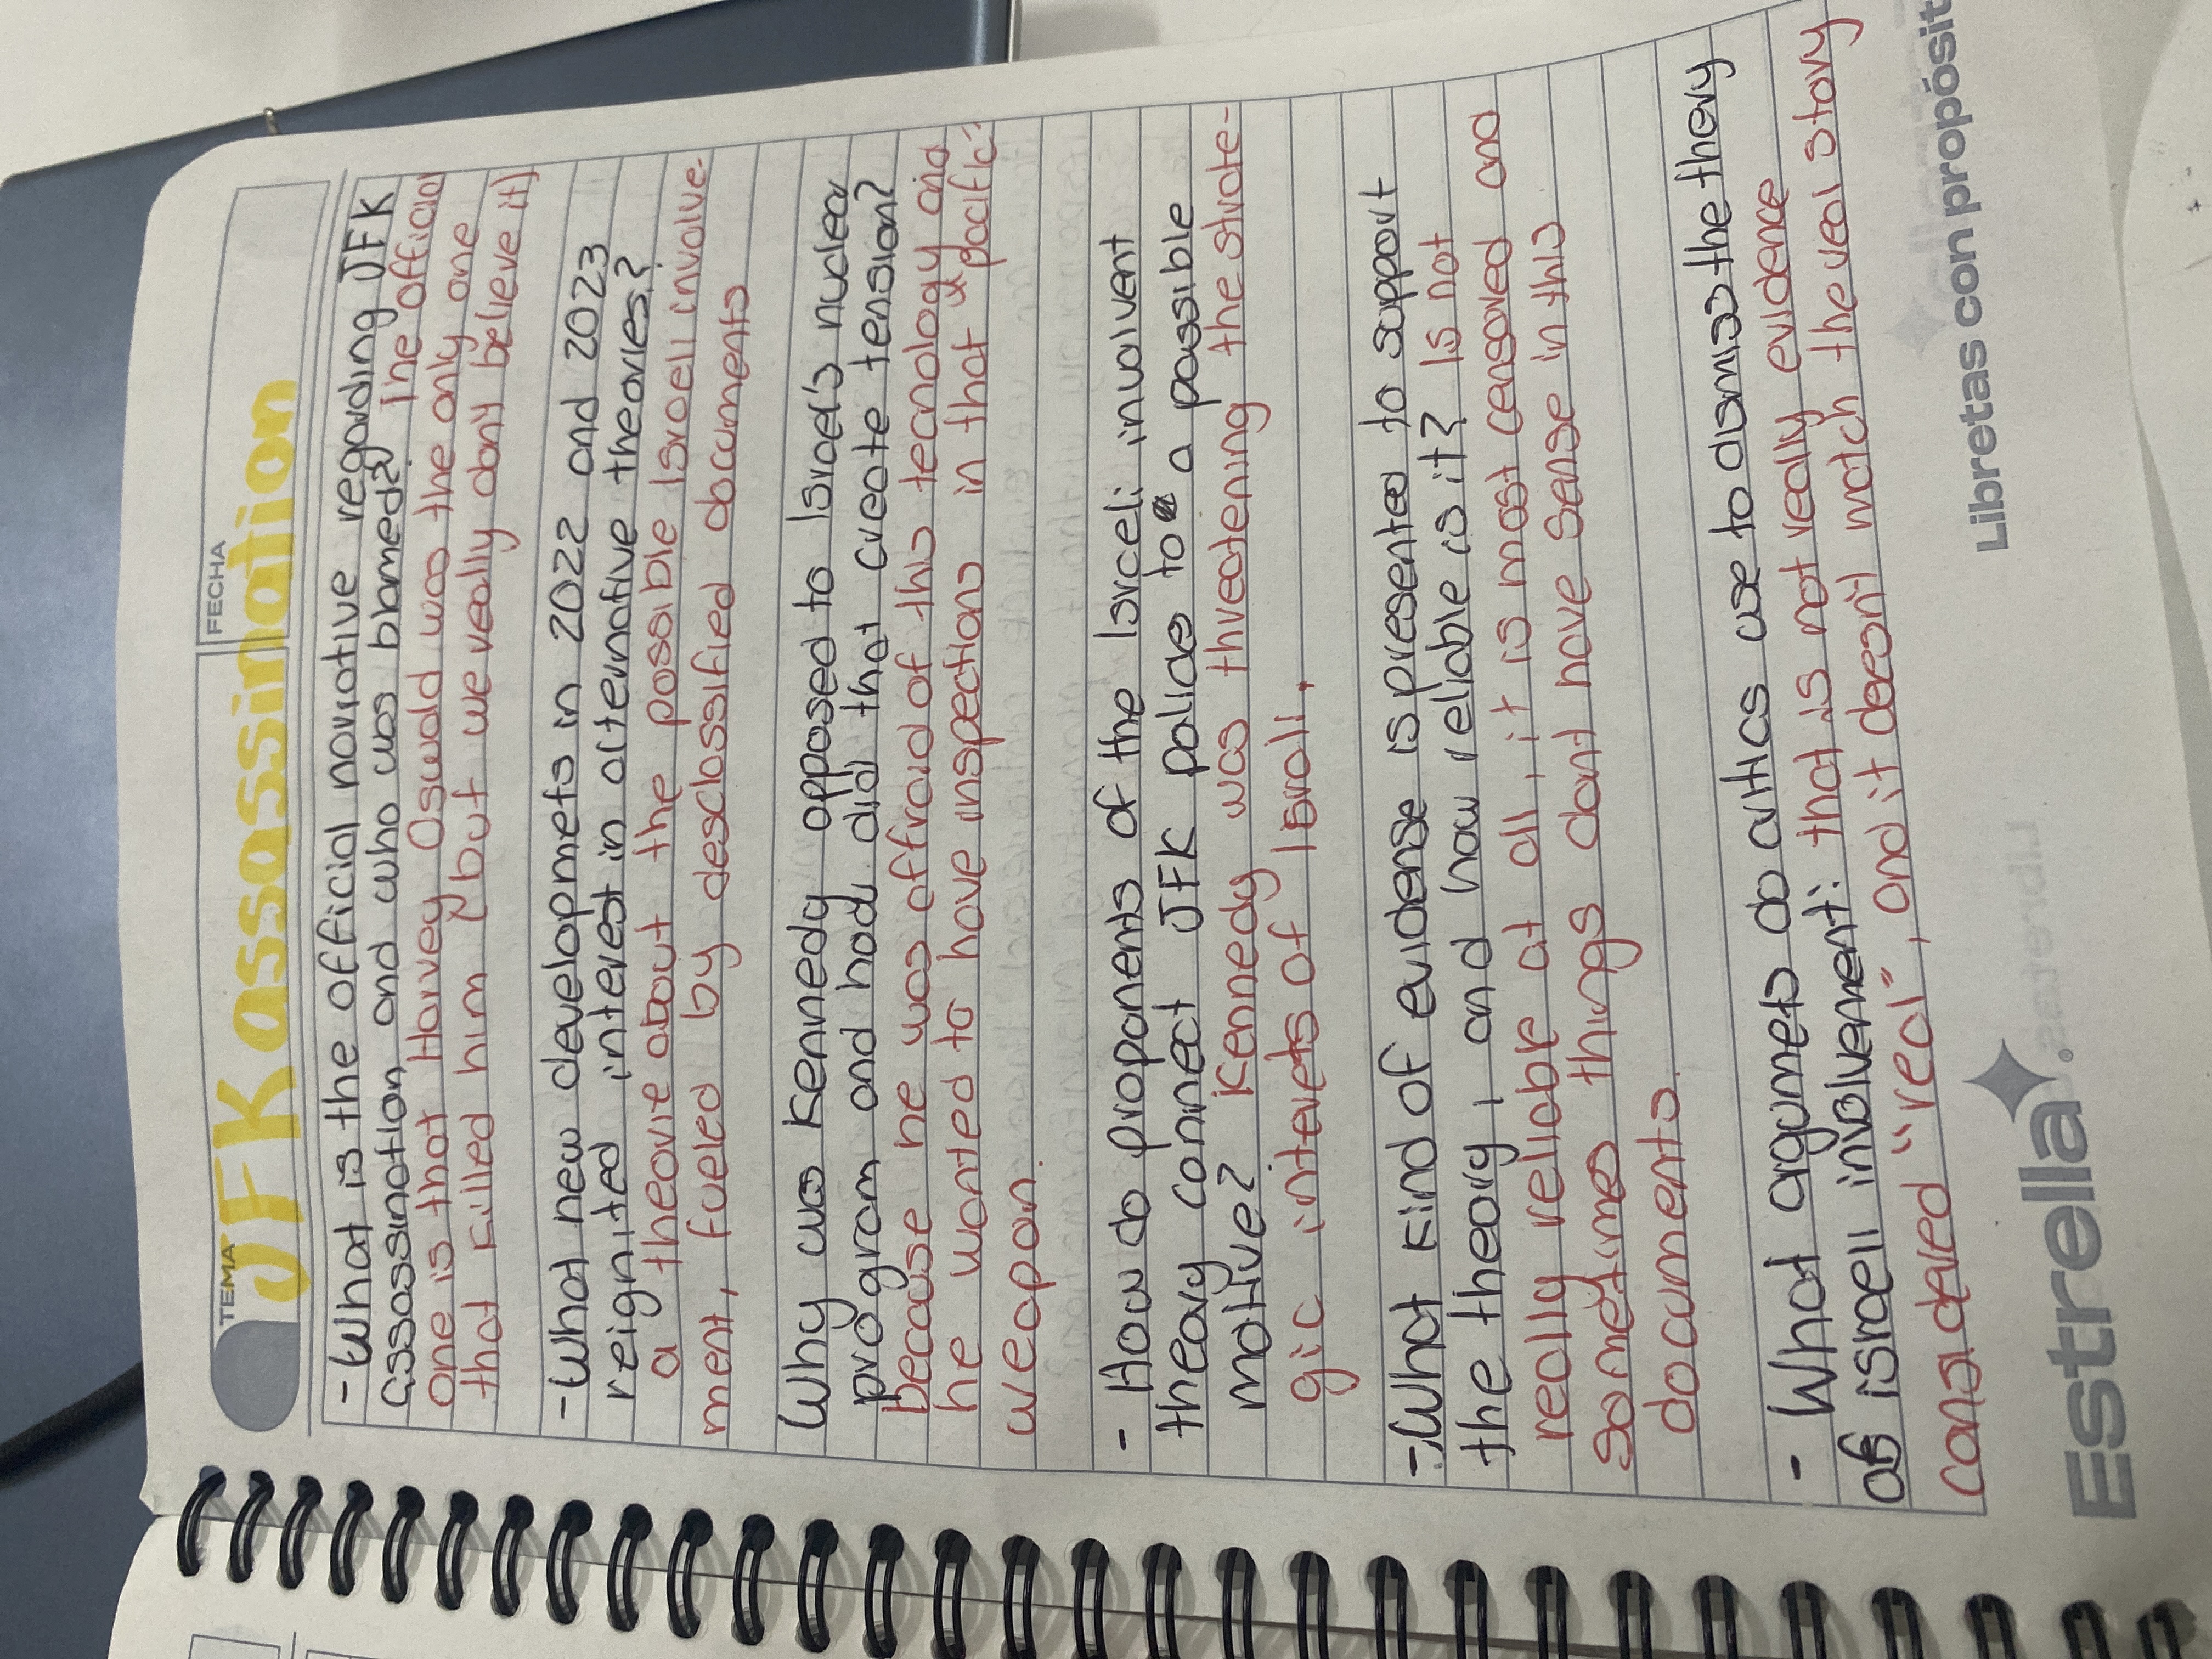 TEMA
FECHA
JFK assassination
- What is the official narrative regarding JFK
assassination and who was blamed? The official
one is that Harvey Oswald was the only one
that killed him (but we really don't believe it)
- What new developmets in 2022 and 2023
reignited interest in alternative theories?
a theorie about the possible Israeli involve-
ment, fueled by desclassified documents
Why was Kennedy opposed to Israel's nuclear
program and how did that create tension?
because he was affraid of this tecnology and
he wanted to have inspections in that pacific
weapon.
- How do proponents of the Isrceli involvent
theory connect JFK policies to a possible
motive? Kennedy was threatening the strate-
gic interets of Israll.
- What kind of evidense is presented to support
the theory, and how reliable is it? Is not
really reliable at all, it is most censored and
sometimes things dont have sense in this
documents.
- What argumets do critics use to dismiss the theory
of israeli involvement: that is not really evidence
considered "real", and it doesn't match the real story
Estrella.
Libretas con propósit